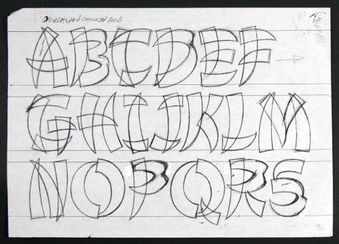 ABCDEF
GHIJKLM
NOPQRS